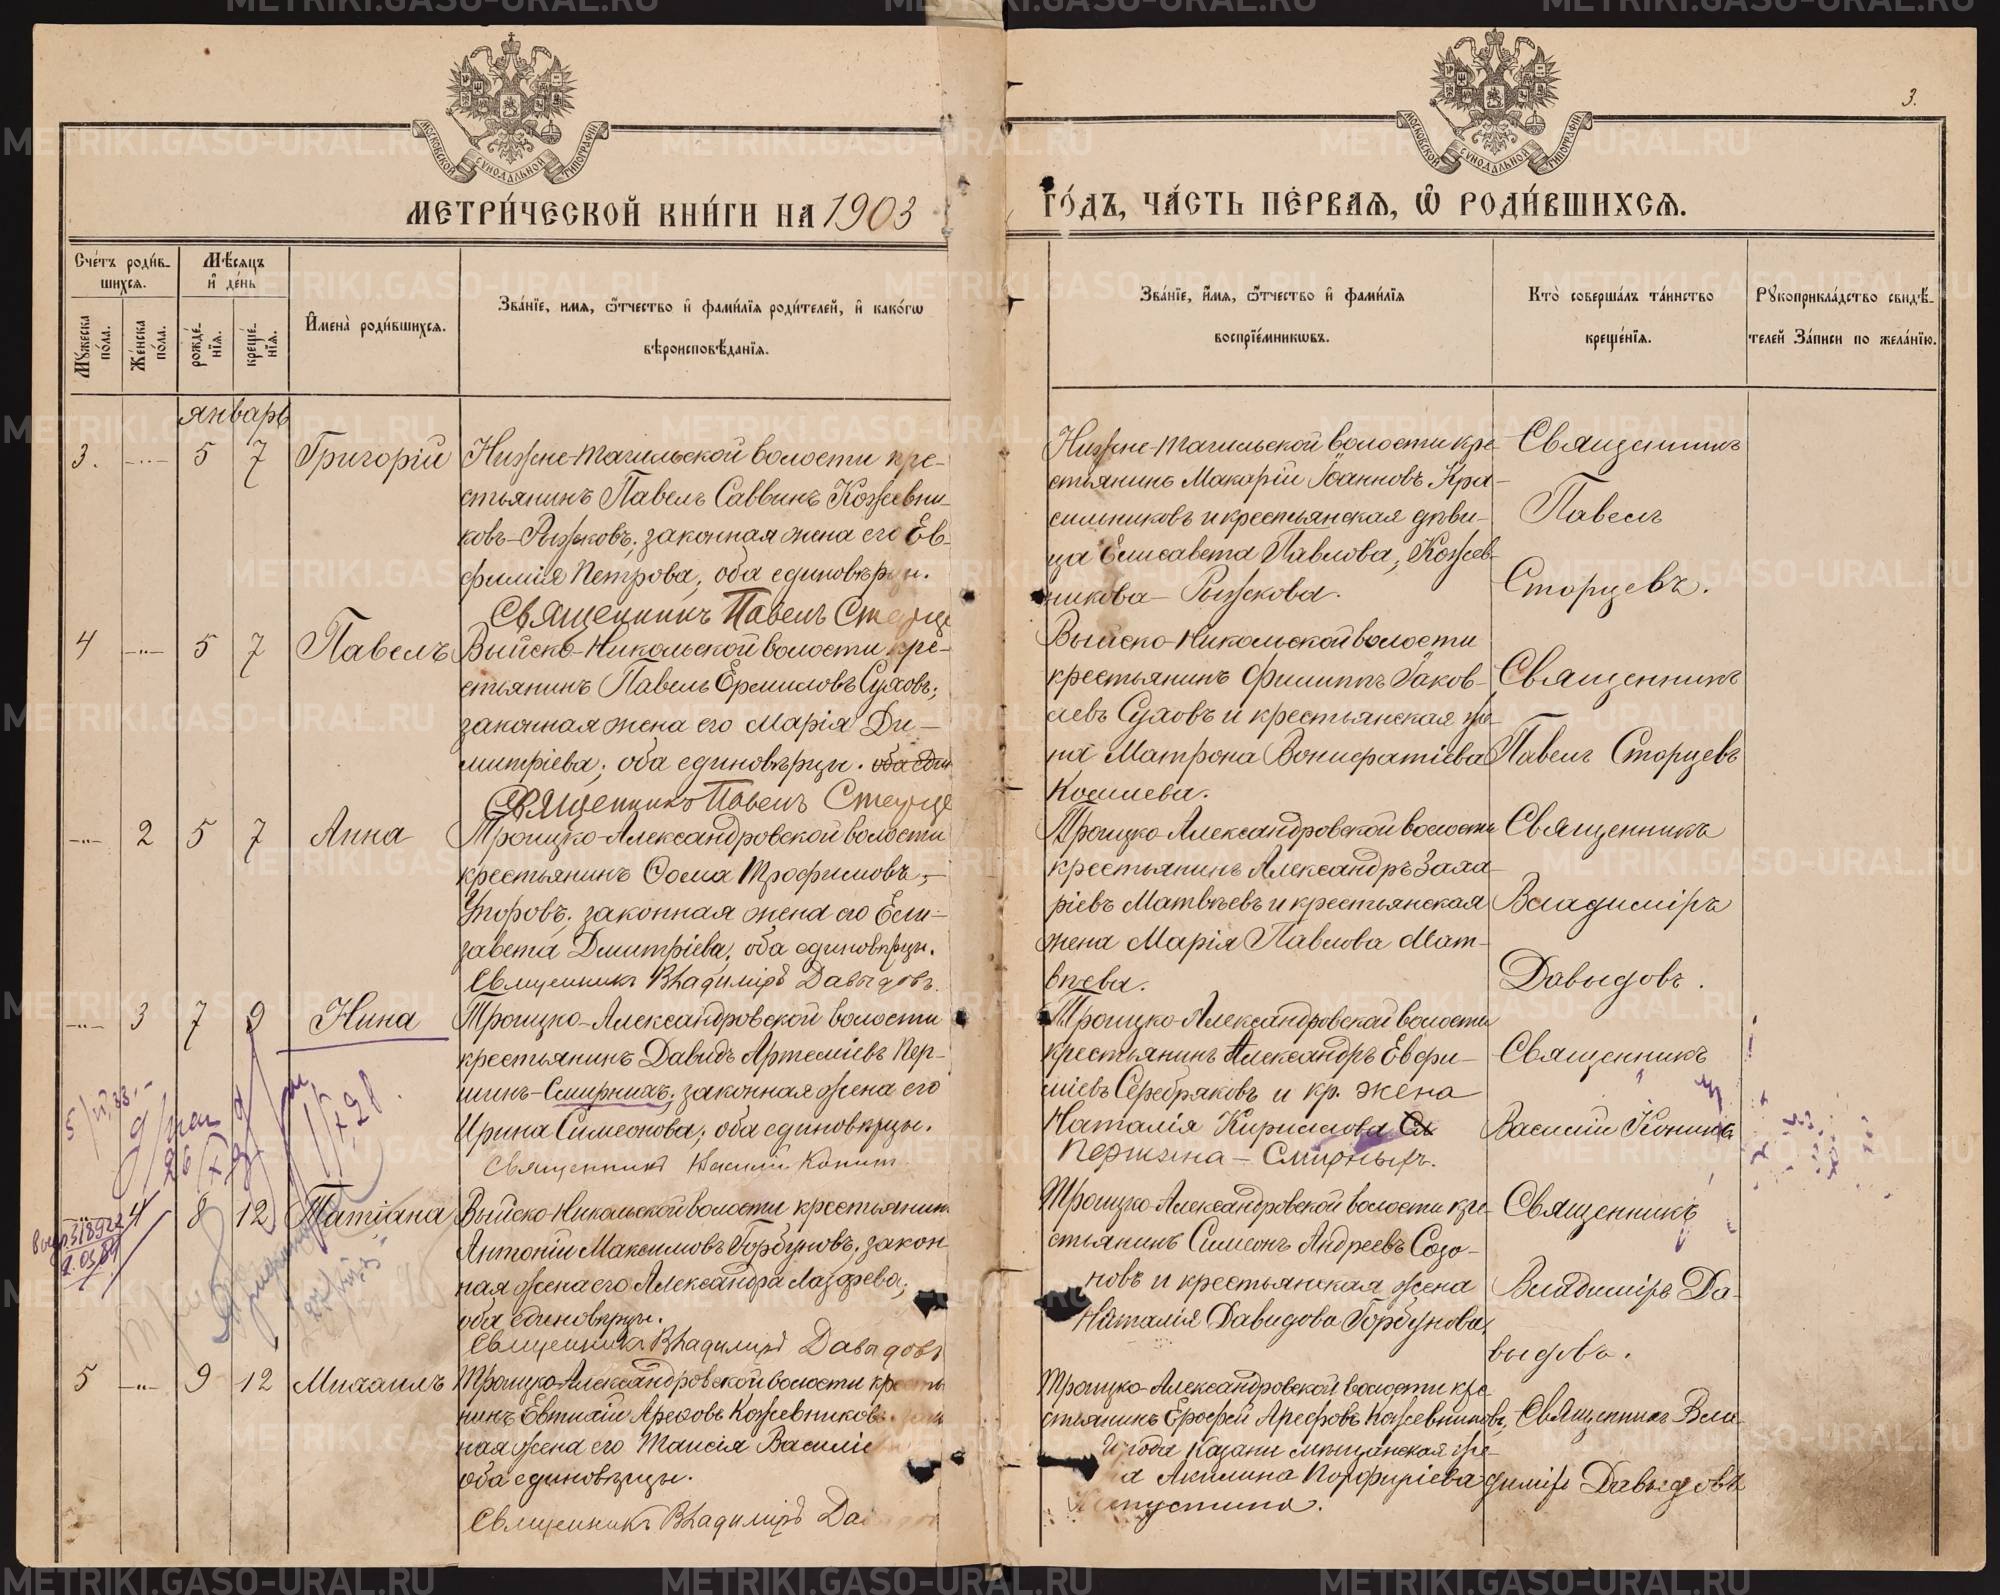 3.
МЕТРИ́ЧЕСКОЙ КНИ́ГИ НА 1903
ГО́ДЪ, ЧА́СТЬ ПЕ́РВАѦ, Ѡ҃ РОДИ́ВШИХСѦ.
МОСКОВСКОЙ СѴНОДАЛЬНОЙ ТИПОГРАФІИ
МОСКОВСКОЙ СѴНОДАЛЬНОЙ ТИПОГРАФІИ
Сче́тъ роди́вшихсѧ.
Мꙋжеска по́ла.
Же́нска по́ла.
Мѣ́сѧцъ и҆ де́нь
рожде́нїѧ.
креще́нїѧ.
И҆мена̀ роди́вшихсѧ.
Зва́нїе, имѧ, ѻ҆́тчество и҆ фами́лїѧ роди́телей, и҆ како́гѡ
вѣроисповѣ́данїѧ.
Зва́нїе, и҆́мѧ, ѻ҆́тчество и҆ фами́лїѧ
воспрїе́мникѡвъ.
Кто̀ соверша́лъ та́инство
креще́нїѧ.
Рꙋкоприкла́дство свидѣ́-
телей За́писи по жела́нїю.
январь
3. -"- 5 7 Григорій
Нижне-Тагильской волости кре-
стьянинъ Павелъ Саввинъ Кожевни-
ковъ-Рыжковъ, законная жена его Ев-
фимія Петрова, оба единовѣрцы.
Священникъ Павелъ Старце
Нижне-Тагильской волости кре-
стьянинъ Макарій Іоанновъ Кра-
сильниковъ и крестьянская дѣви-
ца Елисавета Павлова, Кожев-
никова-Рыжкова.
Священникъ
Павелъ
Старцевъ.
4 -"- 5 7 Павелъ
Выйско-Никольской волости кре-
стьянинъ Павелъ Ермиловъ Суховъ,
законная жена его Марія Ди-
митріева, оба единовѣрцы. оба един
Священникъ Павелъ Старце
Выйско-Никольской волости
крестьянинъ Филиппъ Іаков-
левъ Суховъ и крестьянская же-
на Матрона Вонифатіева
Кошлева.
Священникъ
Павелъ Старцевъ
-"- 2 5 7 Анна
Троицко-Александровской волости
крестьянинъ Ѳома Трофимовъ
Угоровъ, законная жена его Ели-
завета Дмитріева, оба единовѣрцы.
Священникъ Владиміръ Давыдовъ.
Троицко-Александровской волости
крестьянинъ Александръ Заха-
ріевъ Матвѣевъ и крестьянская
жена Марія Павлова Мат-
вѣева.
Священникъ
Владиміръ
Давыдовъ.
-"- 3 7 9 Нина
Троицко-Александровской волости
крестьянинъ Давидъ Артеміевъ Пер-
шинъ-Смирныхъ, законная жена его
Ирина Симеонова, оба единовѣрцы.
Священникъ Василій Конин
Троицко-Александровской волости
крестьянинъ Александръ Евфи-
міевъ Серебряковъ и кр. жена
Наталія Кириллова См
Першина-Смирныхъ.
Священникъ
Василій Конинъ
4 8 12 Татіана
Выйско-Никольской волости крестьянин
Антоній Максимовъ Горбуновъ, закон
ная жена его Александра Лазарева,
оба единовѣрцы.
Священникъ Владиміръ Давыдовъ
Троицко-Александровской волости кре-
стьянинъ Симеонъ Андреевъ Созо-
новъ и крестьянская жена
Наталія Давидова Горбунова.
Священникъ
Владиміръ Да-
выдовъ.
5 -"- 9 12 Михаилъ
Троицко-Александровской волости кресть
нинъ Евтихій Арефовъ Кожевниковъ, зак
ная жена его Таисія Василіе
оба единовѣрцы.
Священникъ Владиміръ Давыдов
Троицко-Александровской волости кре
стьянинъ Ерофей Арефовъ Кожевниковъ,
и города Казани мѣщанская же-
а Акилина Порфиріева
пустина.
Священникъ Вла-
диміръ Давыдовъ
METRIKI.GASO-URAL.RU